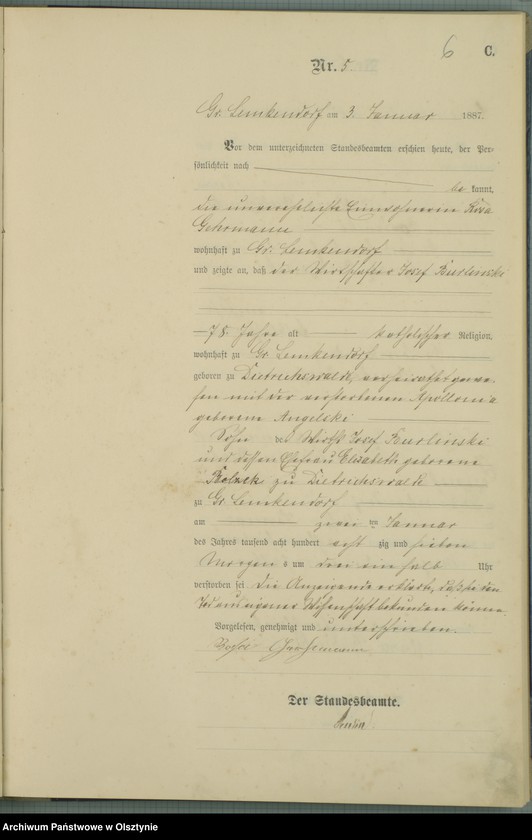 6 C.
Nr. 5
Gr. Lemkendorf am 3. Januar 1887.
Vor dem unterzeichneten Standesbeamten erschien heute, der Per-
sönlichkeit nach
be kannt,
die unverehelichte Einwohnerin Rosa
Gehrmann
wohnhaft zu Gr. Lemkendorf
und zeigte an, daß der Wirthschafter Josef Kurlinski
78 Jahre alt katholischer Religion,
wohnhaft zu Gr. Lemkendorf
geboren zu Dietrichswalde, verheirathet gewe-
sen mit der verstorbenen Apollonia
geborene Angelski
Sohn des Wirths Josef Kurlinski
und dessen Ehefrau Elisabeth geborene
zu Dietrichswalde
zu Gr. Lemkendorf
am zwei ten Januar
des Jahres tausend acht hundert acht zig und sieben
Morgens um drei ein halb Uhr
verstorben sei. Die Anzeigende erklärte, daß sie den
Tod aus eigener Wissenschaft bekunden könne.
Vorgelesen, genehmigt und unterschrieben.
Rosa Gehrmann
Der Standesbeamte.
Archiwum Państwowe w Olsztynie